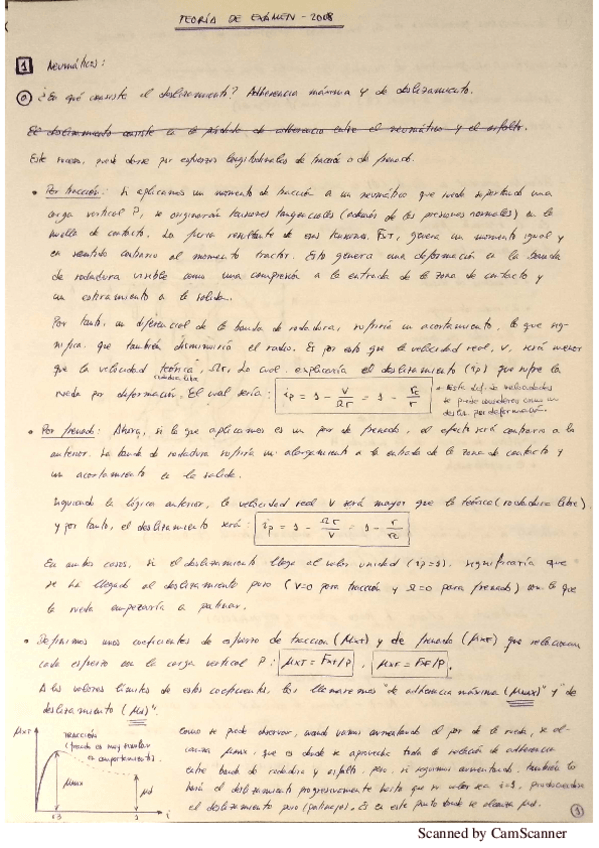 TEORÍA DE EXÁMEN - 2008
1 Neumáticos:
¿En qué consiste el deslizamiento? Adherencia máxima y de deslizamiento.
El deslizamiento consiste en la pérdida de adherencia entre el neumático y el asfalto.
Este puede darse por esfuerzos longitudinales de tracción o de frenado.
• Por tracción: Si aplicamos un momento de tracción a un neumático que rueda soportando una
carga vertical P, se originarán tensiones tangenciales (además de las presiones normales) en la
huella de contacto. La fuerza resultante de esas tensiones, FxT, genera un momento igual y
en sentido contrario al momento tractor. Esto genera una deformación en la banda
de rodadura visible como una compresión a la entrada de la zona de contacto y
un estiramiento a la salida.
Por tanto, un diferencial de la banda de rodadura, sufriría un acortamiento, lo que sig-
nifica, que también disminuirá el radio. Es por esto que la velocidad real, V, será menor
que la velocidad teórica, Ωr, lo cual explicaría el deslizamiento (ip) que sufre la
rodadura libre
rueda por deformación. El cual sería: ip = 1 - V/Ωr = 1 - rc/r
• Esta dif. de velocidades
se puede considerar como un
desliz. por deformación.
• Por frenado: Ahora, si lo que aplicamos es un par de frenado, el efecto será contrario a lo
anterior. La banda de rodadura sufriría un alargamiento a la entrada de la zona de contacto y
un acortamiento en la salida.
Siguiendo la lógica anterior, la velocidad real V será mayor que la teórica (rodadura libre)
y por tanto, el deslizamiento será: ip = 1 - Ωr/V = 1 - r/rc
En ambos casos, si el deslizamiento llega al valor unidad (ip=1), significaría que
se ha llegado al deslizamiento puro (V=0 para tracción y Ω=0 para frenado) con lo que
la rueda empezaría a patinar.
• Definimos unos coeficientes de esfuerzo de tracción (μxT) y de frenado (μxF) que relacionan
cada esfuerzo con la carga vertical P: μxT = FxT/P , μxF = FxF/P.
A los valores límites de estos coeficientes, los llamaremos "de adherencia máxima (μmax)" y "de
deslizamiento (μd)".
μxT
TRACCIÓN
(frenado es muy similar
en comportamiento).
μmax
μd
1
i
Como se puede observar, cuando vamos aumentando el par de la rueda, se al-
canza μmax, que es donde se aprovecha toda la relación de adherencia
entre banda de rodadura y asfalto, pero, si seguimos aumentando, también lo
hará el deslizamiento progresivamente hasta que su valor sea i=1, produciéndose
el deslizamiento puro (patinaje). Es en este punto donde se alcanza μd.
1
Scanned by CamScanner